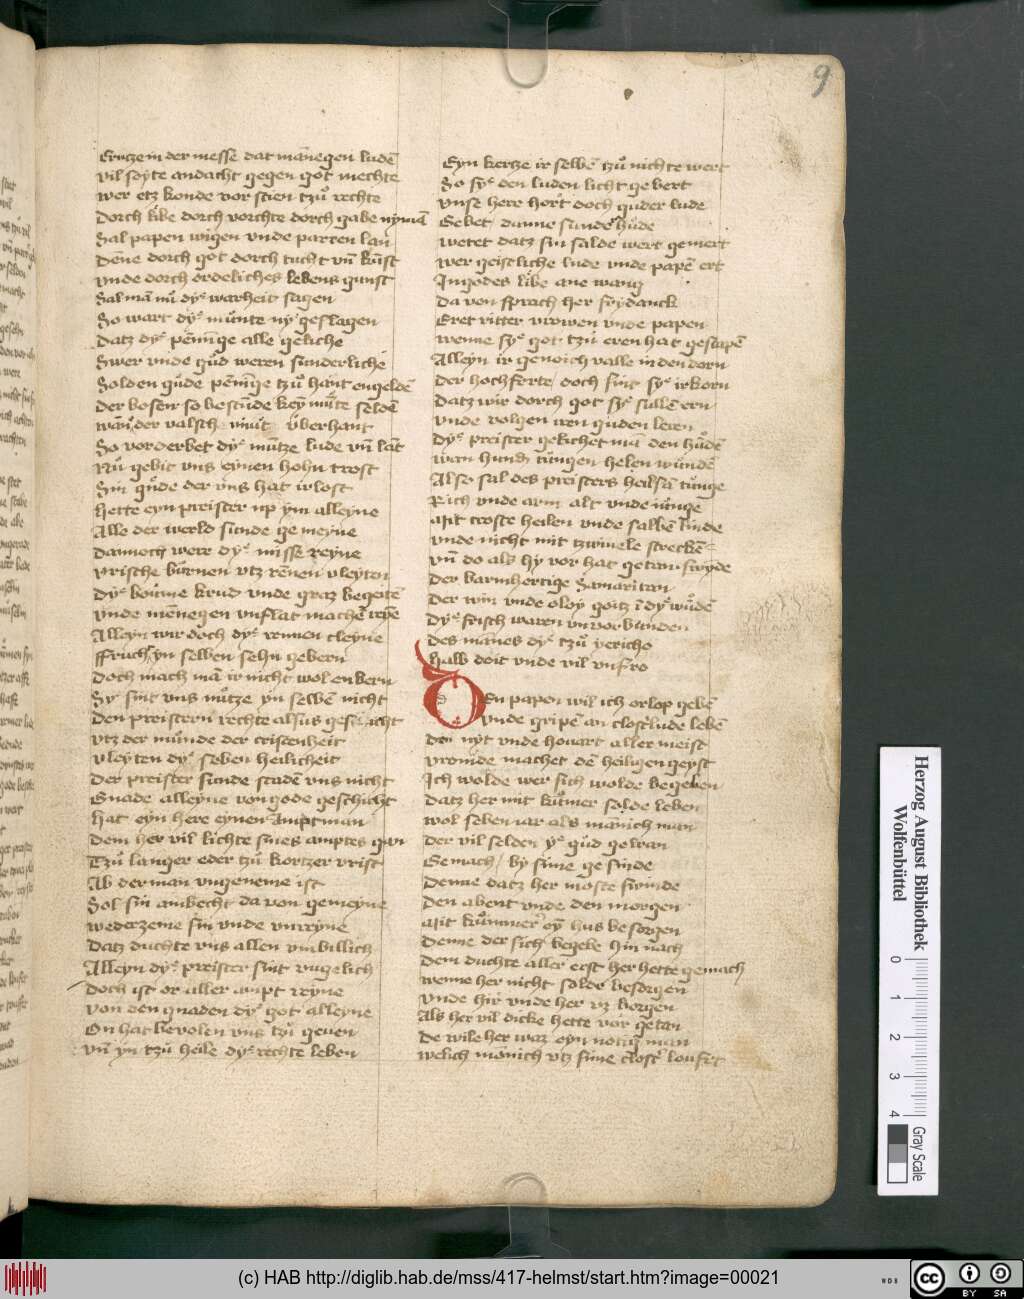 9
Crucze in der messe dat manegen ludē
vil soyte andacht gegen got mechte
wer etz konde vor stien tzů rechte
Dorch libe dorch vorchte dorch gabe nymā
Sal papen wigen vnde parren lan
Dene dorch got dorch tucht vn̄ kūst
vnde dorch ordeliches lebens gunst
Sal mā nů dyͤ warheit sagen
So wart dyͤ můnte ny geslagen
Datz dyͤ pēnige alle geliche
Swer vnde gůd weren sunderliche
Solden gůde pēnige tzů hant engeldē
der bosen so bestůnde key můte seldē
wan der valsch můt vberhant
So vorderbet dyͤ mūtze lude vn̄ lāt
Nů gebit vns eynen hohn trost
Sin gůde der vns hat irlost
hette eyn preister vp ym alleyne
Alle der werld sunde gemeyne
dannoch were dyͤ misse reyne
vrische būrnen vtz rēnen vleyten
Dyͤ boůme krud vnde graz begeitē
vnde mēnegen vnflat machē repē
Alleyn wir doch dyͤ rennen cleyne
ffrucht yn selben sehn gebern
Doch mach mā ir nicht wol enbern
Syͤ sint vns nůtze yn selbē nicht
Den preistern rechte alsus geschicht
vtz der můnde der cristenheit
vleyten dyͤ seben heilicheit
Der preister sunde schadē vns nicht
Gnade alleyne von gode geschicht
hat eyn here eynen amptman
Dem her vil lichte sines amptes gan
Tzů langer eder tzů kortzer vrist
Ab der man vngeneme ist
Sol sin ambecht da von gemeyne
wederzeme sin vnde vnreyne
Datz duchte vns allen vnbillich
Alleyn dyͤ preister sint vngelich
Doch ist or aller ampt reyne
von den gnaden dyͤ got alleyne
On hat bevolen vns tzů geuen
vn̄ yn tzů heile dyͤ rechte leben
Eyn kertze ir selbē tzů nichte wert
So syͤ den luden licht gebert
vnse here hort doch guder lude
Gebet danne sunder hude
wetet datz sin salde wert gemert
wer geistliche lude vnde papē ert
In godes libe ane wang
Da von sprach her frydanck
Eret ritter vrowen vnde papen
wenne syͤ got tzů eren hat gescapē
Alleyn ir genoich valle in den dorn
Der hochferte doch sint syͤ irkorn
Datz wir dorch got syͤ sullē ern
vnde volgen iren guden leren
Dyͤ preister gelichet mā den hudē
wan hundes tungen helen wundē
Also sal des preisters heilsā tunge
Rich vnde arm alt vnde iunge
Mit troste heilen vnde salbē linde
vnde nicht mit tzwiuele strecken
vn̄ do als hy vor hat getan swyde
Der barmhertige Samaritan
Der win vnde oley goitz ī dyͤ wůdē
Dyͤ frisch waren vn vorbunden
des manes dyͤ tzů yericho
halb doit vnde vil vnfro
Den papen wil ich orlop gebē
vnde gripē an closterlude lebē
Den nyt vnde houart aller meist
vromde machet dē heiligen geyst
Ich wolde wer sich wolde begeben
Datz her mit kůmer solde leben
wol seben iar als manich man
Der vil selden yͤ gůd gewan
Gemach by sime gesinde
Denne datz her moste swinde
Den abent vnde den morgen
Mit kůmmer eȳ hus besorgen
Denne der sich begebe hin nach
Dem duchte aller erst her hette gemach
wenne her nicht solde besorgen
vnde hir vnde her vz borgen
Als her vil dicke hette vor getan
De wile her waz eyn notig man
welich mōnich vtz sime closter loufet
Herzog August Bibliothek
Wolfenbüttel
0 1 2 3 4
Gray Scale
(c) HAB http://diglib.hab.de/mss/417-helmst/start.htm?image=00021
WDB
cc BY SA